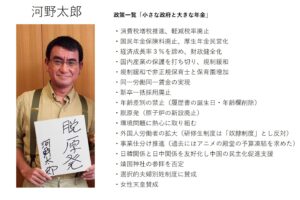 河野太郎
政策一覧「小さな政府と大きな年金」
・消費税増税推進、軽減税率廃止
・国民年金保険料廃止、厚生年金民営化
・経済成長率３％を諦め、財政健全化
・国内産業の保護を打ち切り、規制緩和
・規制緩和で非正規保育士と保育園増加
・同一労働同一賃金の実現
・新卒一括採用廃止
・年齢差別の禁止（履歴書の誕生日・年齢欄削除）
・脱原発（原子炉の新設廃止）
・環境問題に熱心に取り組む
・外国人労働者の拡大（研修生制度は「奴隷制度」とし反対）
・事業仕分け推進（過去にはアニメの殿堂の予算凍結を求めた）
・日韓関係と日中関係を友好化し中国の民主化促進支援
・靖国神社の参拝を否定
・選択的夫婦別姓制度に賛成
・女性天皇賛成
脱原発
河野太郎